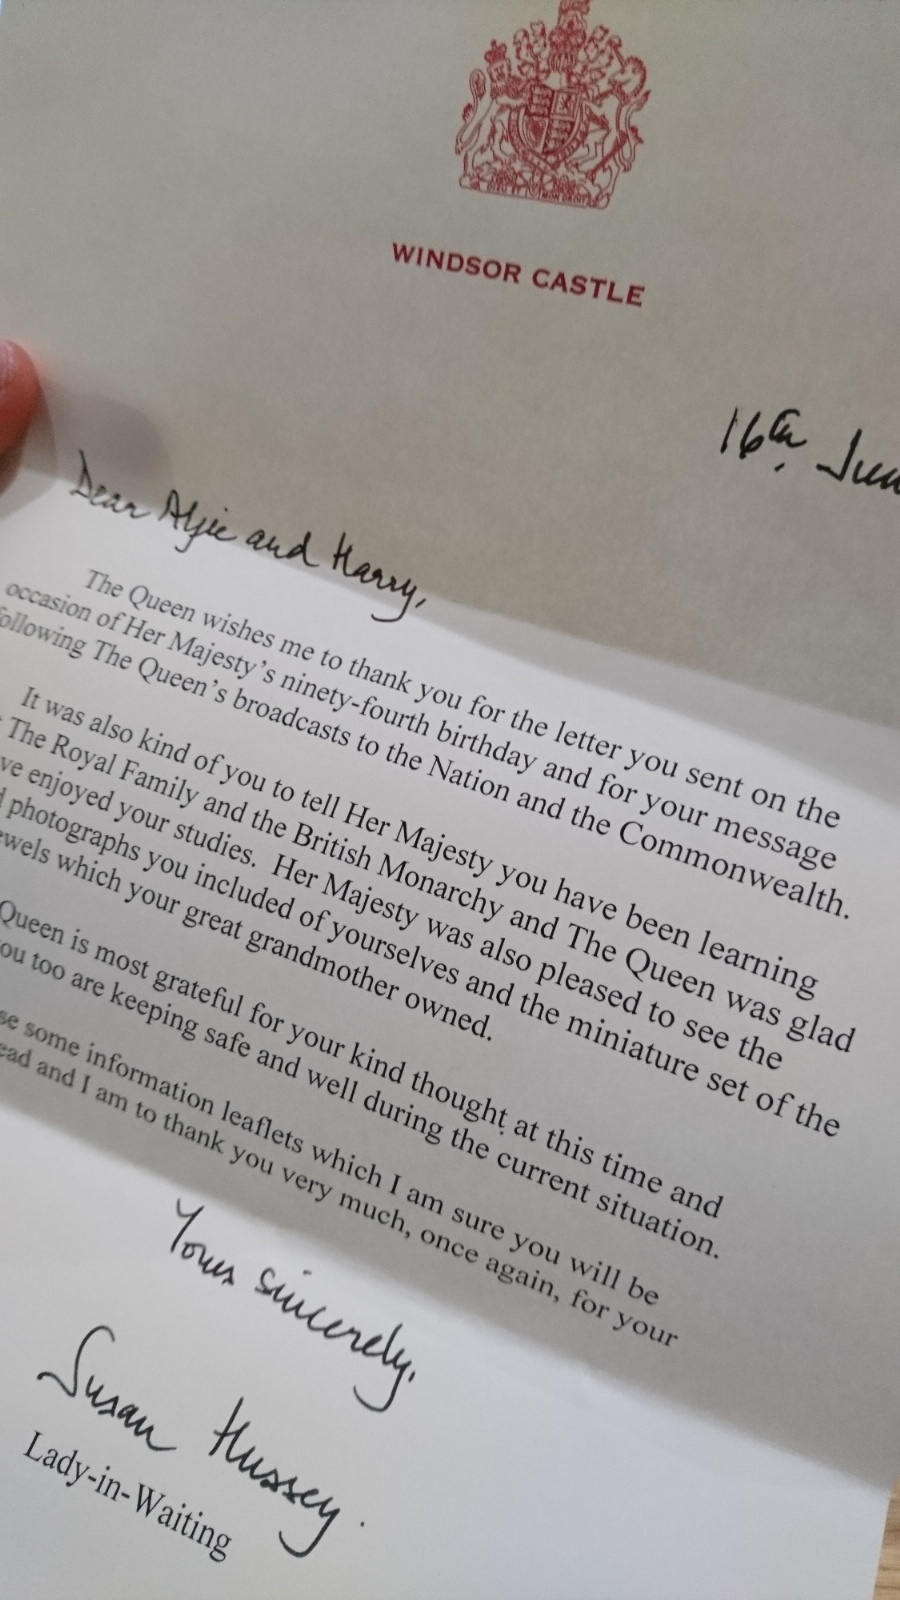 DIEU ET MON DROIT
WINDSOR CASTLE
16th
Dear Alfie and Harry,
The Queen wishes me to thank you for the letter you sent on the
occasion of Her Majesty's ninety-fourth birthday and for your message
following The Queen's broadcasts to the Nation and the Commonwealth.
It was also kind of you to tell Her Majesty you have been learning
The Royal Family and the British Monarchy and The Queen was glad
enjoyed your studies. Her Majesty was also pleased to see the
photographs you included of yourselves and the miniature set of the
which your great grandmother owned.
Queen is most grateful for your kind thought at this time and
you too are keeping safe and well during the current situation.
some information leaflets which I am sure you will be
and I am to thank you very much, once again, for your
Yours sincerely,
Susan Hussey.
Lady-in-Waiting